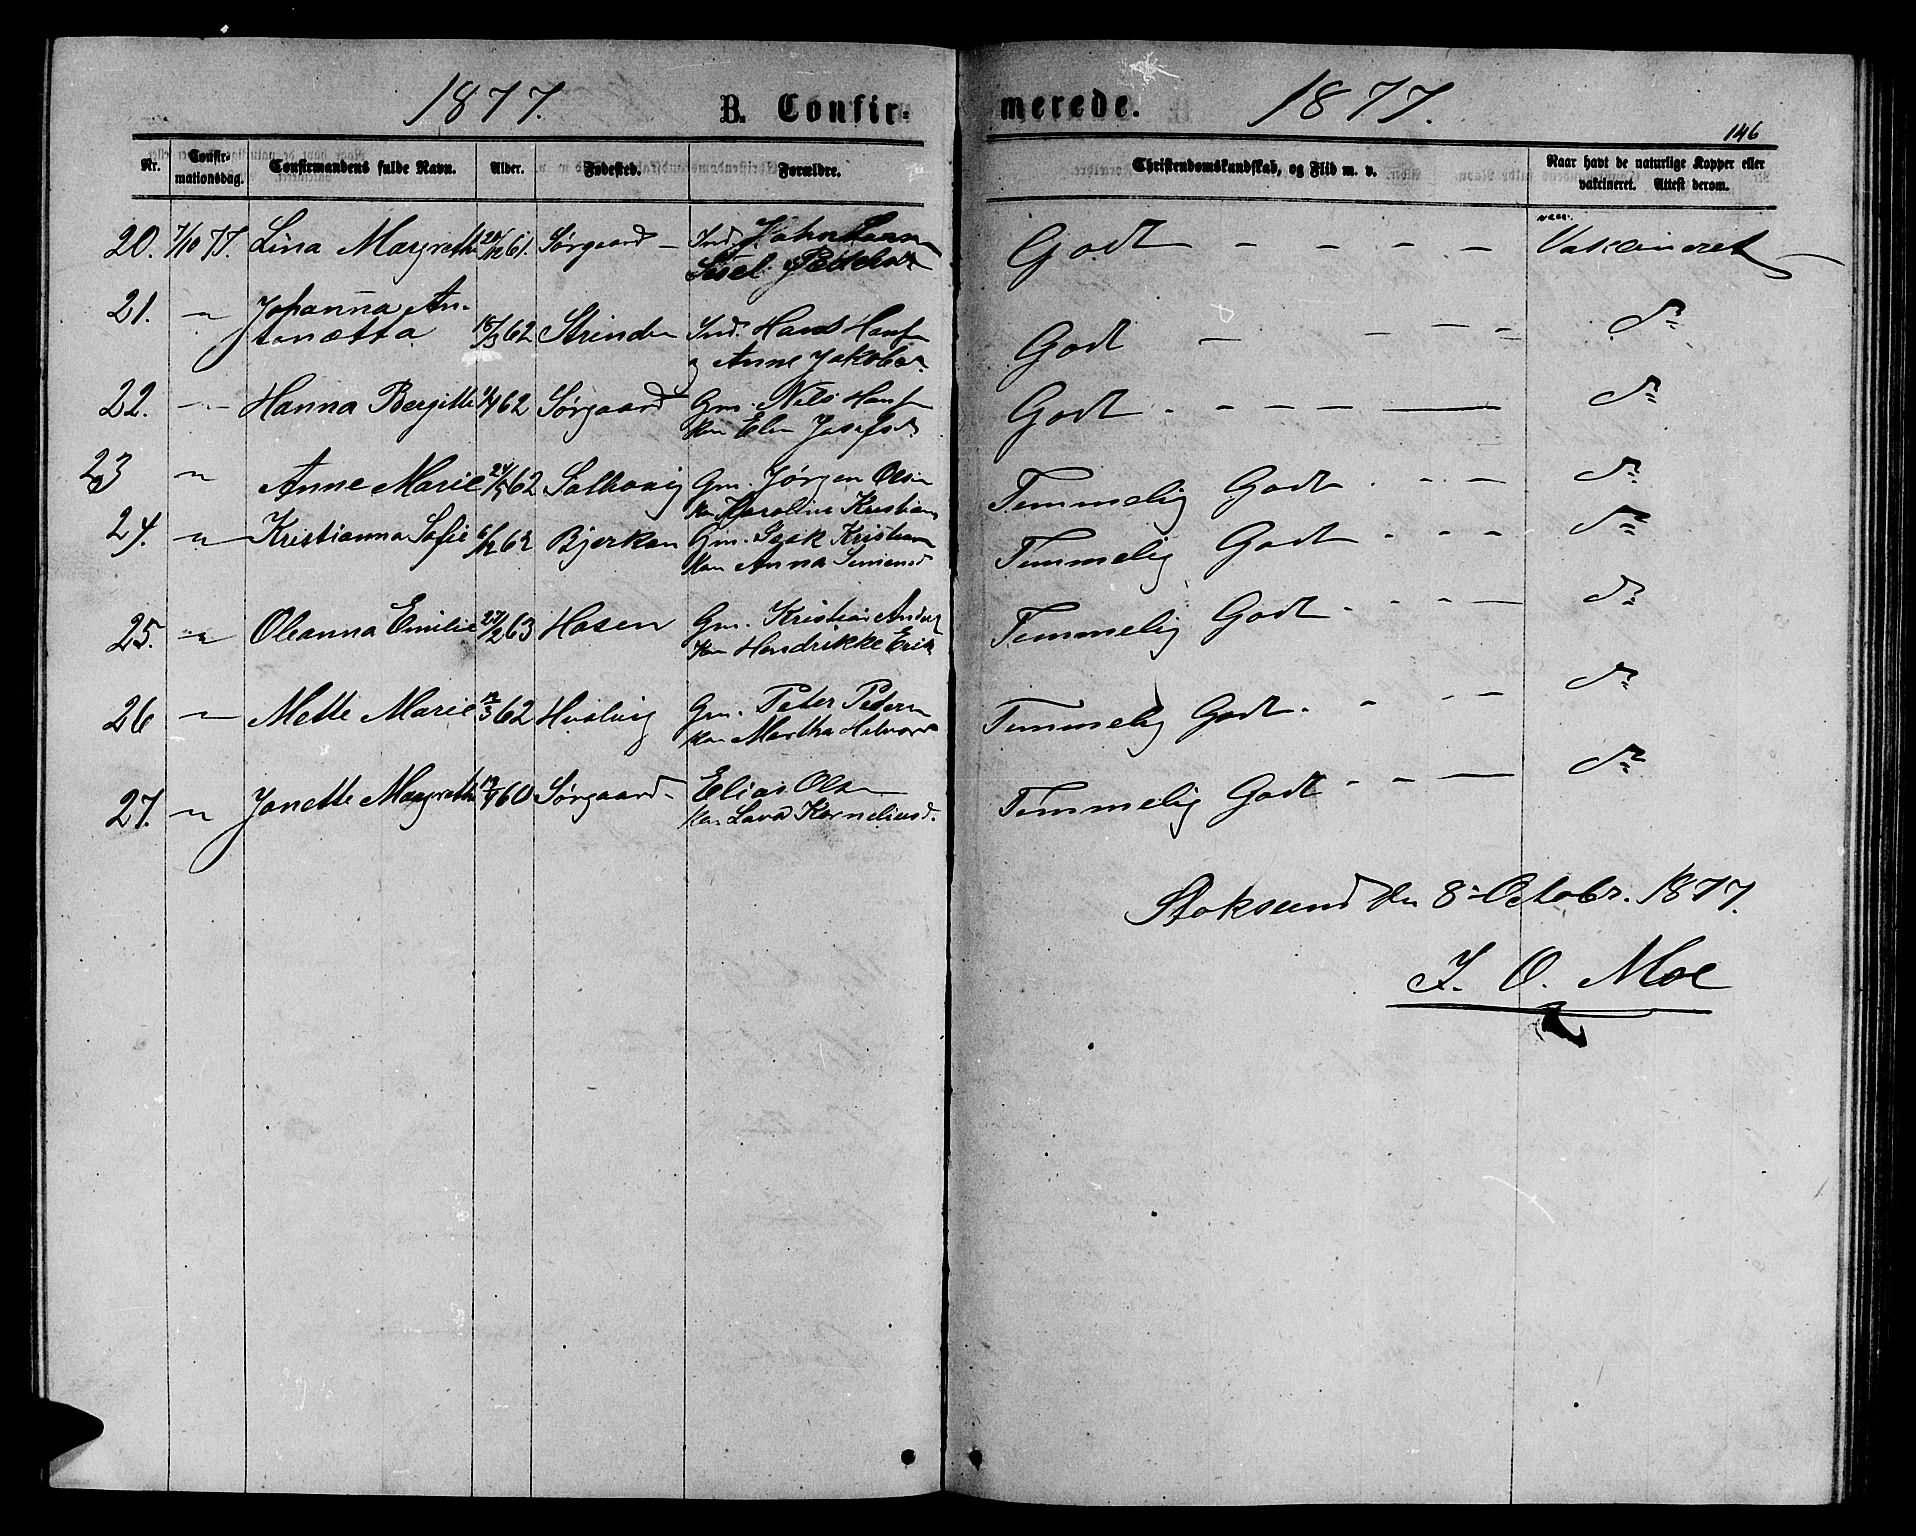 1877. B. Confirmerede. 1877.
146
Nr. Confirmationsdag. Confirmandens fulde Navn. Alder. Fødested. Forældre. Christendomskundskab, og Flid m. v. Naar havt de naturlige Kopper eller vakcineret. Attest derom.
20. 7/10 77. Lina Margrethe 61. Sørgaard Ind. John Sisel Godt - - - - Vakcineret
21. " Johanna An-
tonætta 18/3 62 Strinden Ind. Hans Hans
og Anne Jakobsd. Godt - - - - do
22. " Hanna Bergitte 62 Sørgaard Gm. Nils Hans
Kon Elen Josefsd. Godt - - - - do
23 " Anne Marie 24/5 62 Gm. Jørgen Olsen
Kon Karoline Kristians Temmelig Godt - - - do
24. " Kristianna Sofie 6/12 62 Bjerkan Gm. Isak Kristian
Kon Anna Simensd Temmelig Godt - - - do
25. " Oleanna Emilie 27/2 63 Hosen Gm. Kristian Anders
Kon Hendrikke Erik Temmelig Godt - - - do
26 " Mette Marie 12/3 62 Gm. Peter Peters
Kon Martha Halvors Temmelig Godt - - - do
27. " Jonette Margrethe 60 Sørgaard Elias Olsen
Kon Lava Korneliusd. Temmelig Godt - - - do
Stoksund den 8de Octobr. 1877.
I. O. Moe